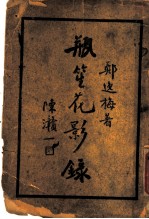 鄭逸梅著
瓶笙花影錄
陳瀏一署